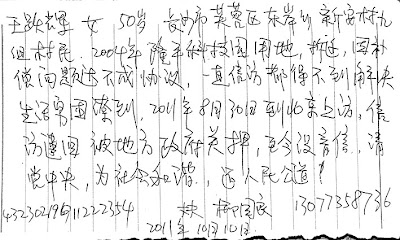 女 50岁 长沙市芙蓉区东岸乡新安村九
组村民。2004年隆平科技园用地,拆迁,因补
偿问题达不成协议,一直信访都得不到解决
生活穷困潦到,2011年8月30日到北京上访,信
访遣回被地方政府关押,至今没音信,请
党中央,为社会和谐,还人民公道!
13077358736
2011年10月10日.